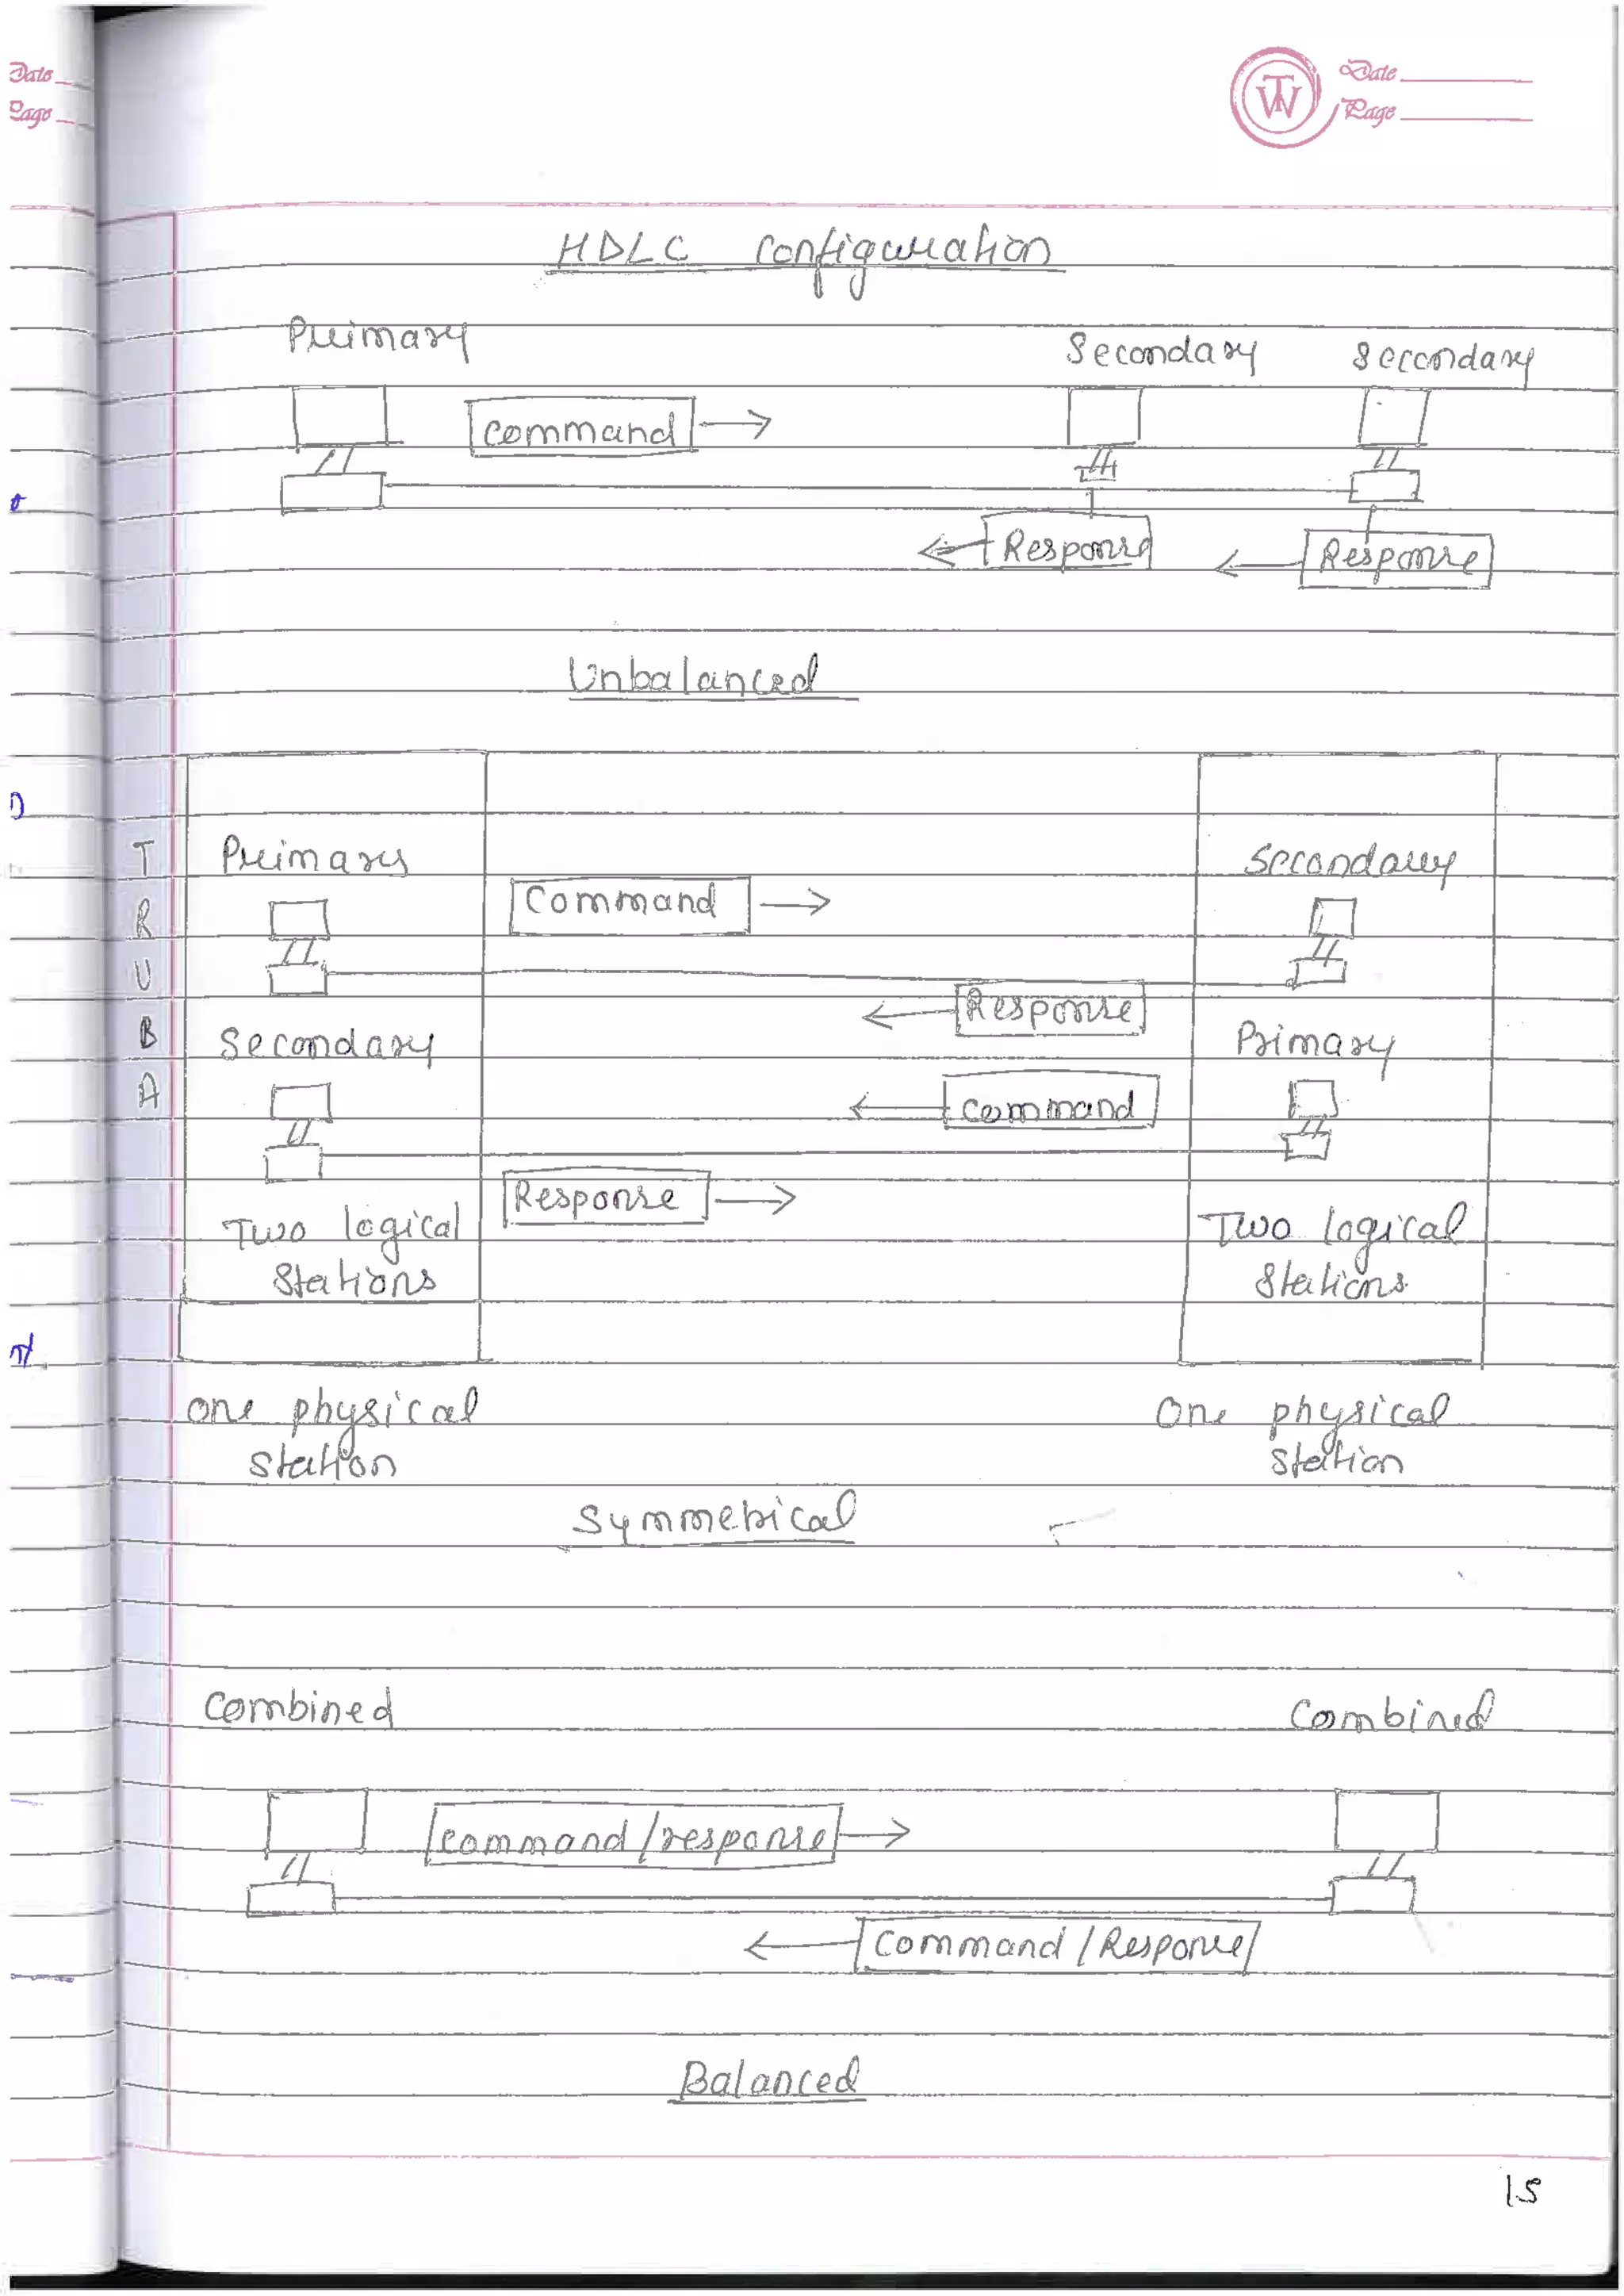 Date
Page
TW
Date
Page
HDLC Configuration
Primary
Secondary
Secondary
Command
Response
Response
Unbalanced
TRUBA
Primary
Secondary
Command
Response
Secondary
Primary
Command
Response
Two logical
Stations
Two logical
Stations
one physical
station
One physical
station
Symmetrical
Combined
Combined
command/response
Command/Response
Balanced
15